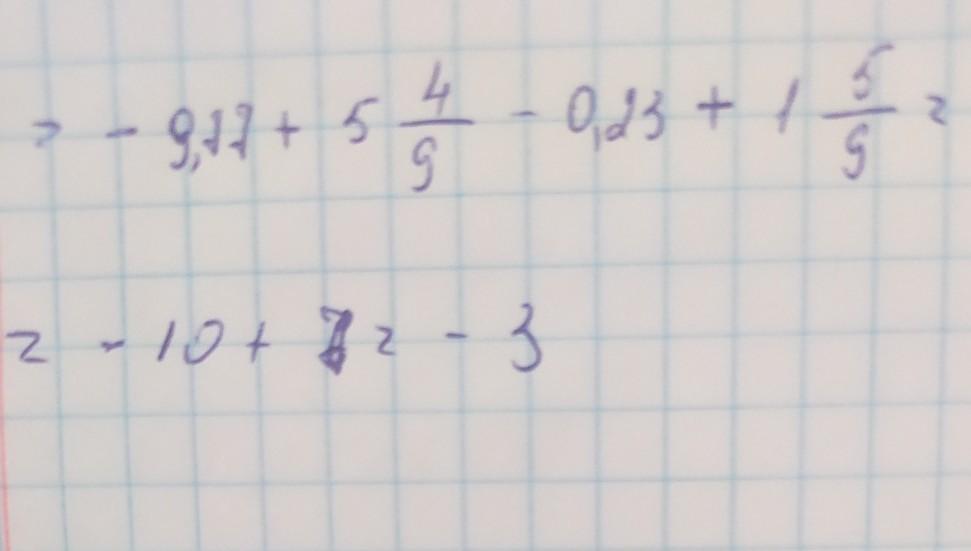 = - 9,77 + 5 4/9 - 0,23 + 1 5/9 =
= - 10 + 7 = - 3